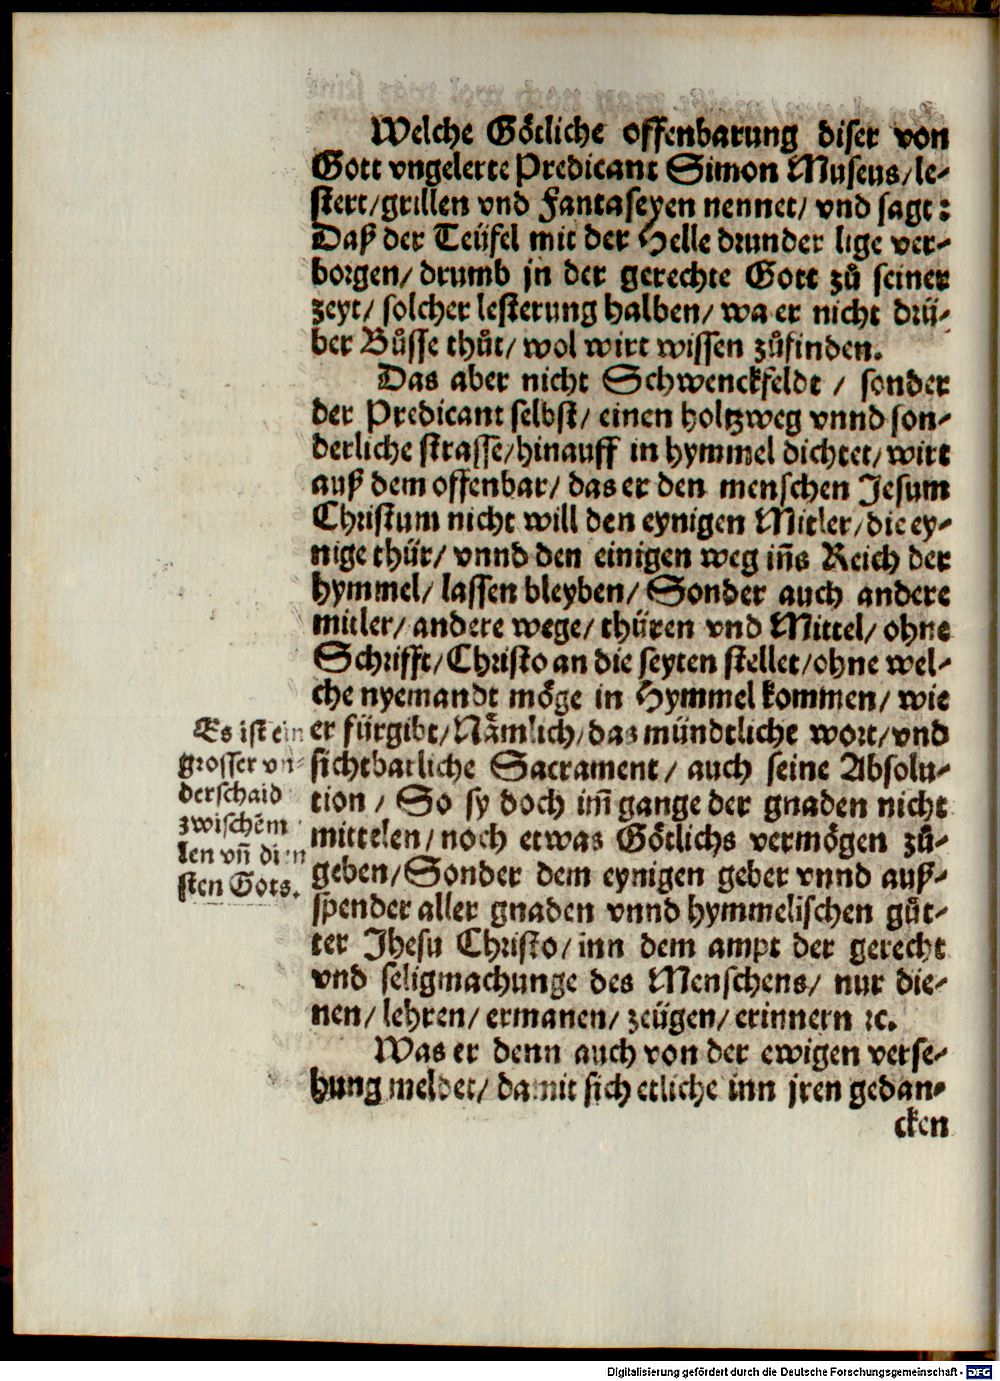 Welche Götliche offenbarung diser von
Gott vngelerte Predicant Simon Museus/le-
stert/grillen vnd Fantaseyen nennet/ vnd sagt:
Daß der Teüfel mit der Helle drunder lige ver-
borgen/ drumb jn der gerechte Gott zů seiner
zeyt/ solcher lesterung halben/ wa er nicht drü-
ber Bůsse thůt/ wol wirt wissen zůfinden.
Das aber nicht Schwenckfeldt / sonder
der Predicant selbst/ einen holtzweg vnnd son-
derliche strasse/hinauff in hymmel dichtet/ wirt
auß dem offenbar/ das er den menschen Jesum
Christum nicht will den eynigen Mitler/ die ey-
nige thür/ vnnd den einigen weg iñs Reich der
hymmel/ lassen bleyben/ Sonder auch andere
mitler/ andere wege/ thüren vnd Mittel/ ohne
Schrifft/ Christo an die seyten stellet/ohne wel-
che nyemandt möge in Hymmel kommen/ wie
er fürgibt/ Nämlich/ das mündtliche wort/ vnd
sichtbarliche Sacrament/ auch seine Absolu-
tion / So sy doch im̃ gange der gnaden nicht
mittelen/ noch etwas Götlichs vermögen zů-
geben/ Sonder dem eynigen geber vnnd auß-
spender aller gnaden vnnd hymmelischen güt-
ter Jhesu Christo/ inn dem ampt der gerecht
vnd seligmachunge des Menschens/ nur die-
nen/ lehren/ ermanen/ zeügen/ erinnern ꝛc.
Was er denn auch von der ewigen verse-
hung meldet/ damit sich etliche inn jren gedan-
cken
Es ist ein
grosser vn-
derschaid
zwischẽ m
len vñ dien
sten Gots.
Digitalisierung gefördert durch die Deutsche Forschungsgemeinschaft - DFG